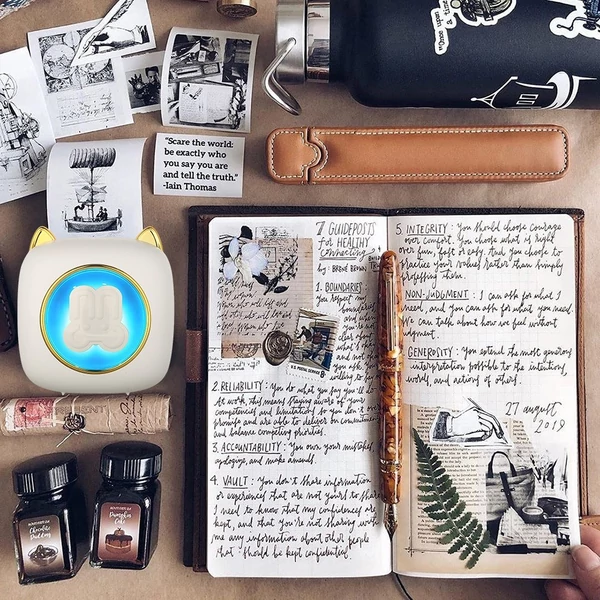 "once upon a
"Scare the world:
be exactly who
you say you are
and tell the truth."
-Iain Thomas
7 GUIDEPOSTS
for HEALTHY
Connecting
by: BRENÉ BROWN
1. BOUNDARIES:
You respect my
boundaries,
2. RELIABILITY: You do what you say you'll do.
At work, this means staying aware of your
competencies and limitations so you don't over
promise and are able to deliver on commitments
and balance competing priorities.
3. ACCOUNTABILITY: You own your mistakes,
apologize, and make amends.
4. VAULT: You don't share information
or experiences that are not yours to share.
I need to know that my confidences are
kept, and that you're not sharing with
me any information about other people
that should be kept confidential.
5. INTEGRITY: You should choose courage
over comfort. You choose what is right
over fun, fast or easy. And you choose to
practice your values rather than simply
professing them.
NON-JUDGMENT: I can ask for what I
need, and you can ask for what you need.
We can talk about how we feel without
judgment.
GENEROSITY: You extend the most generous
interpretation possible to the intentions,
words, and actions of others.
27 august
2019
U.S. POSTAL SERVICE
Chocolate
Pudding
Pumpkin
Cake